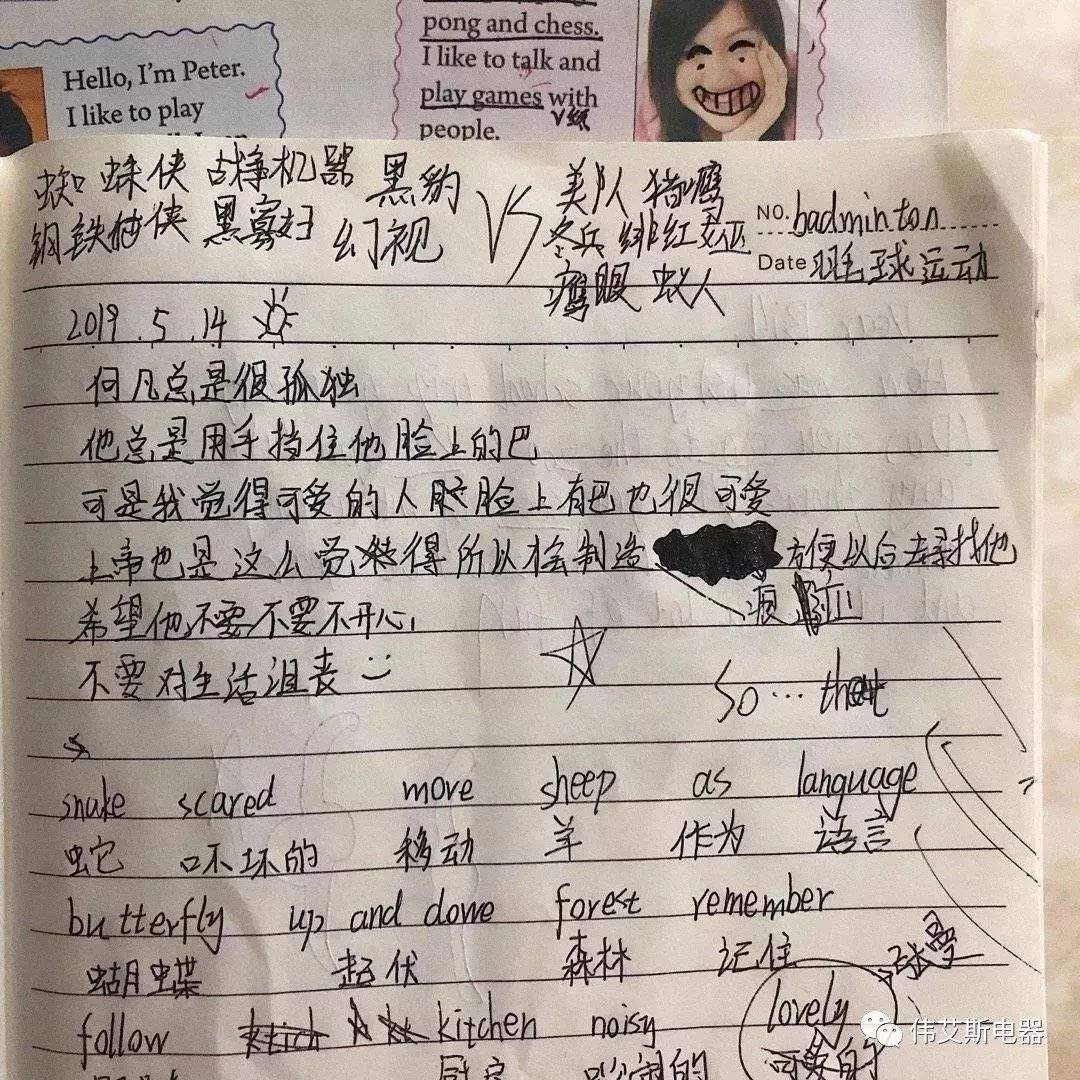 Hello, I'm Peter.
I like to play
pong and chess.
I like to talk and
play games with
people.
蜘蛛侠 战争机器 黑豹
钢铁侠 黑寡妇 幻视
VS
美队 猎鹰
冬兵 绯红女巫
鹰眼 蚁人
NO. badminton
Date 羽毛球运动
2019.5.14
何凡总是很孤独
他总是用手挡住他脸上的巴
可是我觉得可爱的人脸上有巴也很可爱
上帝也是这么觉得所以才会制造 方便以后去寻找他
希望他不要不要不开心
不要对生活沮丧
So... that
snake scared move sheep as language
蛇 吓坏的 移动 羊 作为 语言
butterfly up and dowe forest remember
蝴蝶 起伏 森林 记住
follow kitchen noisy lovely
厨房 吵闹的 可爱的
伟艾斯电器